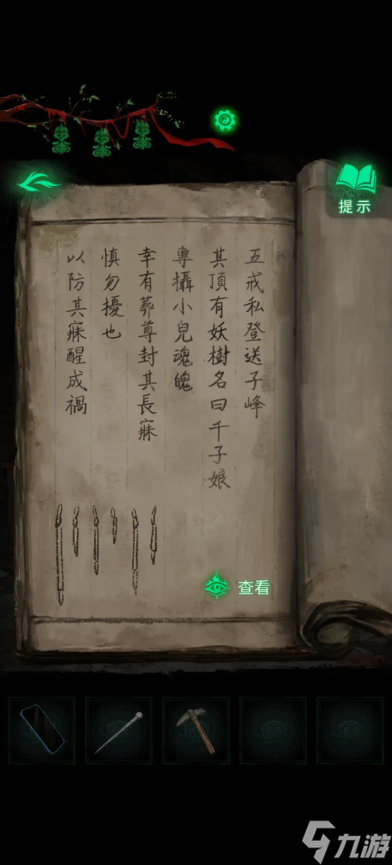 提示
五戒私登送子峰
其頂有妖樹名曰千子娘
專攝小兒魂魄
幸有葬尊封其長寐
慎勿擾也
以防其寐醒成禍
查看
九游